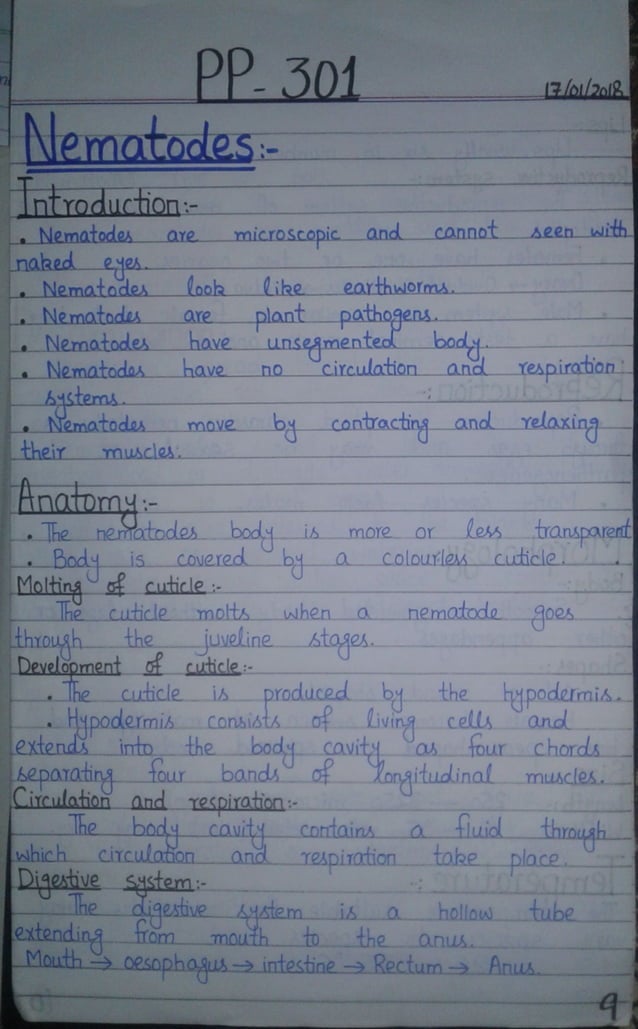 PP-301
17/01/2018
Nematodes:-
Introduction:-
• Nematodes are microscopic and cannot seen with
naked eyes.
• Nematodes look like earthworms.
• Nematodes are plant pathogens.
• Nematodes have unsegmented body.
• Nematodes have no circulation and respiration
systems.
• Nematodes move by contracting and relaxing
their muscles.
Anatomy:-
• The nematodes body is more or less transparent
• Body is covered by a colourless cuticle.
Molting of cuticle:-
The cuticle molts when a nematode goes
through the juveline stages.
Development of cuticle:-
• The cuticle is produced by the hypodermis.
• Hypodermis consists of living cells and
extends into the body cavity as four chords
separating four bands of longitudinal muscles.
Circulation and respiration:-
The body cavity contains a fluid through
which circulation and respiration take place.
Digestive system:-
The digestive system is a hollow tube
extending from mouth to the anus.
Mouth → oesophagus → intestine → Rectum → Anus.
9